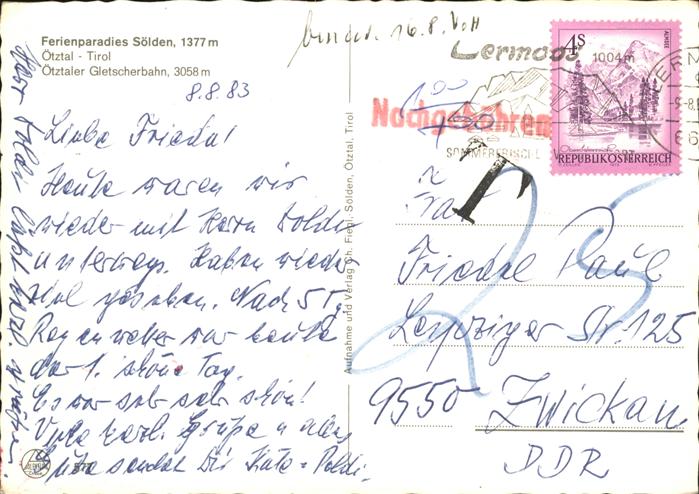 Ferienparadies Sölden, 1377 m
Ötztal - Tirol
Ötztaler Gletscherbahn, 3058 m
8.8.83
Liebe Friedal
Heute waren wir
wieder mit Herrn Poldi
unterwegs. Haben wieder
viel gesehen. Nach 5 T.
Regenwetter war heute
der 1. schöne Tag.
Es war sehr sehr schön!
Viele herzl. Grüße u. alles
Gute sendet Dir Käta + Poldi.
Herr Poldi läßt herzl. grüßen.
Aufnahme und Verlag Ch. Fiegl, Sölden, Ötztal, Tirol
16.8.
Lermoos
1004 m
Nachgebühren
T
25
4 S
ALMSEE
REPUBLIK ÖSTERREICH
Frau
Friedel Paul
Leipziger Str. 125
9550 Zwickau
DDR